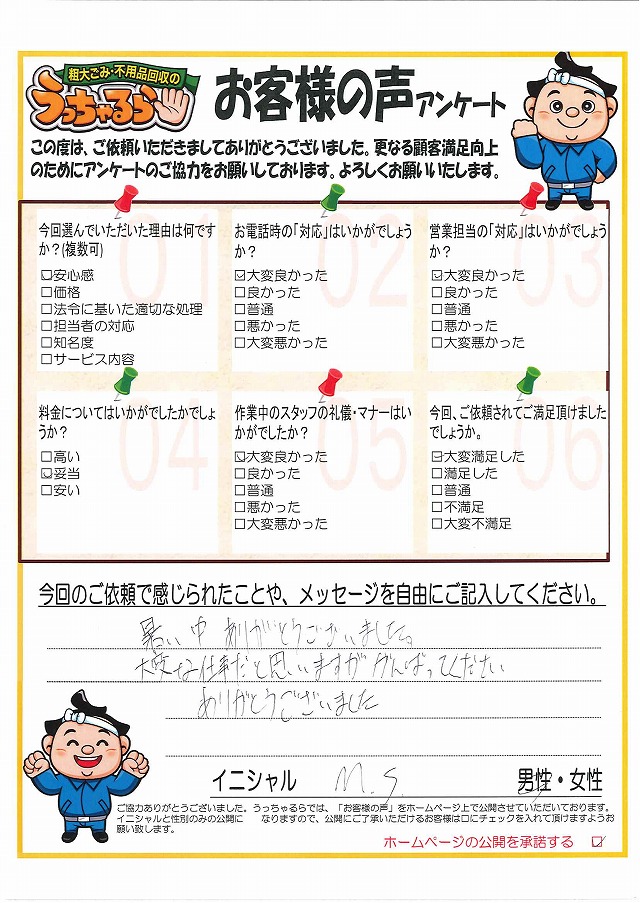 粗大ごみ・不用品回収の
うっちゃるら
お客様の声アンケート
この度は、ご依頼いただきましてありがとうございました。更なる顧客満足向上
のためにアンケートのご協力をお願いしております。よろしくお願いいたします。
01
今回選んでいただいた理由は何です
か？(複数可)
☑安心感
□価格
□法令に基いた適切な処理
□担当者の対応
□知名度
□サービス内容
02
お電話時の「対応」はいかがでしょう
か？
☑大変良かった
□良かった
□普通
□悪かった
□大変悪かった
03
営業担当の「対応」はいかがでしょう
か？
☑大変良かった
□良かった
□普通
□悪かった
□大変悪かった
04
料金についてはいかがでしたかでしょ
うか？
□高い
☑妥当
□安い
05
作業中のスタッフの礼儀・マナーはい
かがでしたか？
☑大変良かった
□良かった
□普通
□悪かった
□大変悪かった
06
今回、ご依頼されてご満足頂けました
でしょうか。
☑大変満足した
□満足した
□普通
□不満足
□大変不満足
今回のご依頼で感じられたことや、メッセージを自由にご記入してください。
暑い中 ありがとうございました。
大変な仕事だと思いますが がんばってください
ありがとうございました
イニシャル M.S. 男性・女性
ご協力ありがとうございました。うっちゃるらでは、「お客様の声」をホームページ上で公開させていただいております。
イニシャルと性別のみの公開に なりますので、公開にご了承いただけるお客様は口にチェックを入れて頂けますようお
願い致します。
ホームページの公開を承諾する ☑